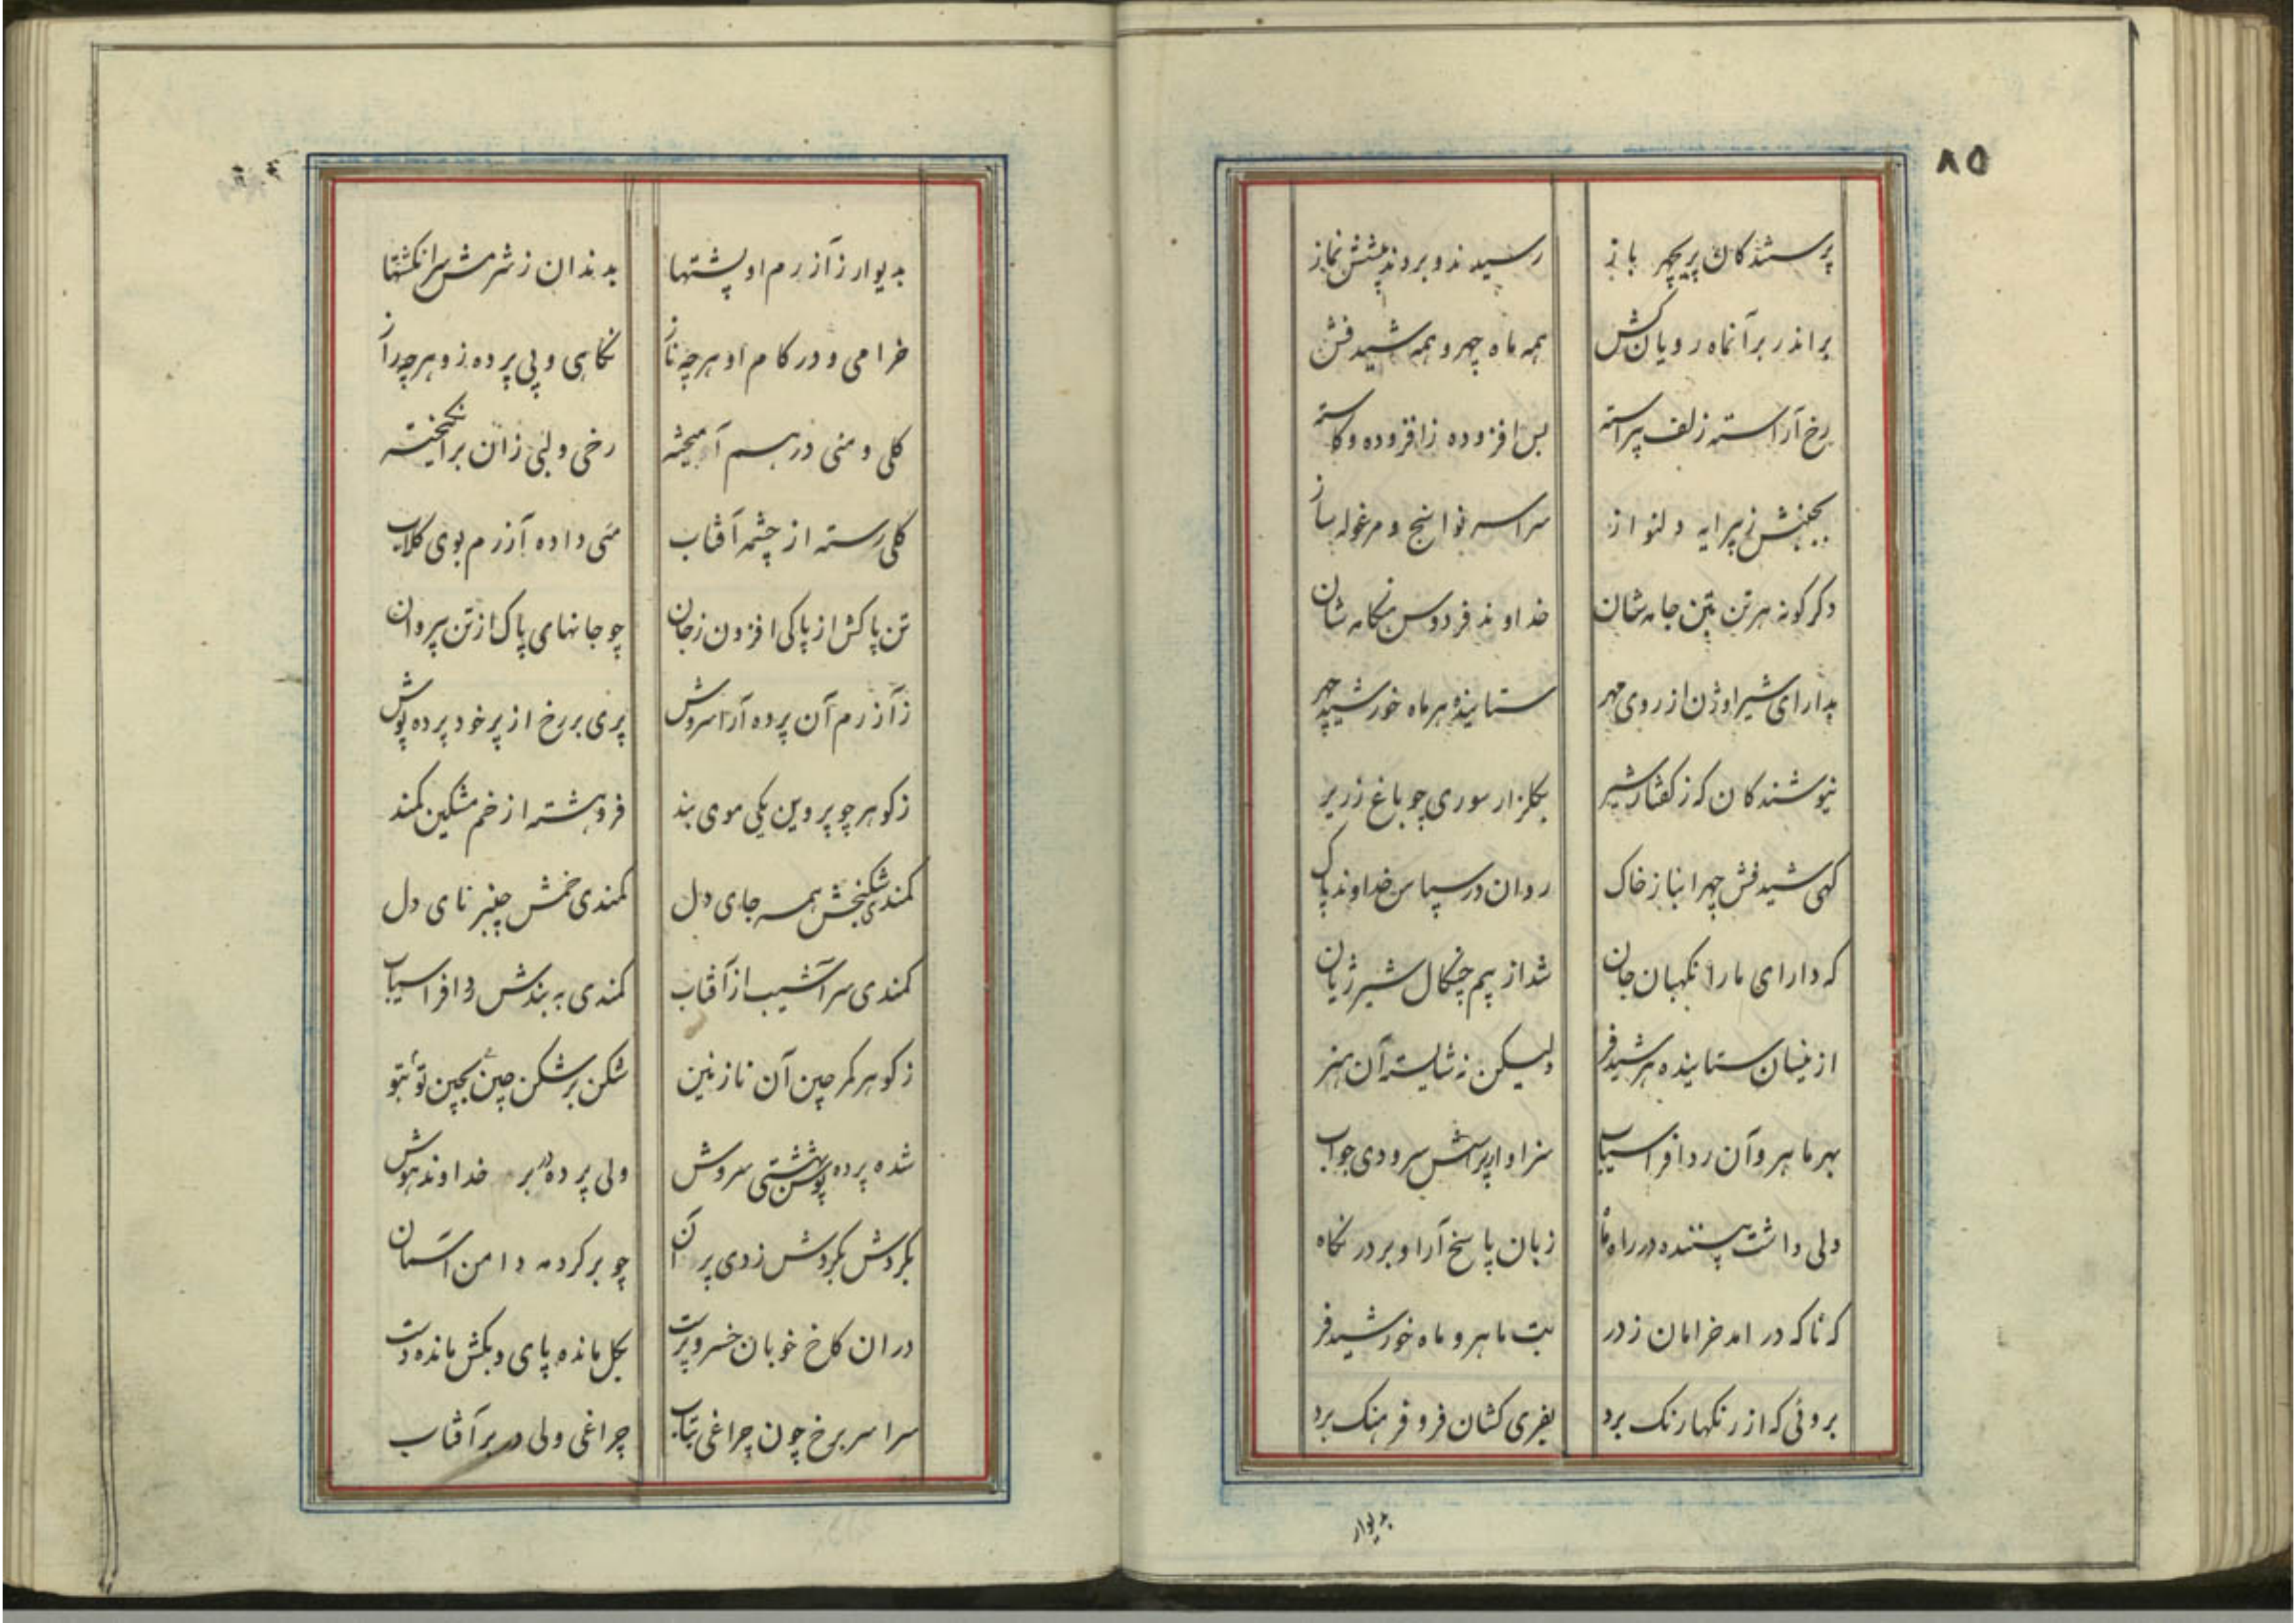 ۸۵
پرستندکان پریچهر باز رسیدند و بردند پیشش نماز
براندر برآنماه رویان کش همه ماه چهر و همه شید فش
رخ آراسته زلف پیراسته بس افزوده زافزوده و کاسته
بجنبش زپیرایه دلنواز سراسر نوا سنج و مرغوله ساز
دکرکونه هر تن بتن جامه شان خداوند فردوس هنکامه شان
بدارای شیراوژن از روی مهر ستاینده هر ماه خورشید چهر
نیوشندکان که ز کفتار شیر بکلزار سوری چو باغ زریر
کهی شید فش چهرا نباز خاک روان در سپاس خداوند پاک
که دارای ما را نکهبان جان شد از بیم چنکال شیر ژیان
ازینسان ستاینده هر شید فر ولیکن نه شایسته آن هنر
بهر ماهرو آن رد افراسیاب سزاوار پرسش سرودی جواب
ولی داشت پیننده در راه ماه زبان پاسخ آرا و بر در نکاه
که ناکه در امد خرامان ز در بت ماهرو ماه خورشید فر
بروئی که از رنکها رنک برد بفری کشان فر و فرهنک برد
بدیوار
بدیوار زآزرم او پشتها بدندان ز شرمش سرانکشتها
خرامی و در کام او هرچه ناز نکاهی و پی پرده زو هرچه راز
کلی و منی درهم آمیخته رخی و لبی زان برانکیخته
کلی رسته از چشمه آفتاب منی داده آزرم بوی کلاب
تن پاکش از پاکی افزون زجان چو جانهای پاک از تن پیروان
زآزرم آن پرده آرا سروش پری بر رخ از پر خود پرده پوش
زکوهر چو پروین یکی موی بند فروهشته از خم مشکین کمند
کمندی شکنجش همه جای دل کمندی خمش چنبر نای دل
کمندی سرآشیب از آفتاب کمندی به بندش رد افراسیاب
زکوهر کمر چین آن نازنین شکن بر شکن چین بچین تو بتو
شده پرده پوشش بهشتی سروش ولی پرده در بر خداوند هوش
بکردش بکردش زدی پر آن چو بر کرد مه دامن آسمان
دران کاخ خوبان خسروپرست بکل مانده پای و بکش مانده دست
سراسر برخ چون چراغی بتاب چراغی ولی در بر آفتاب